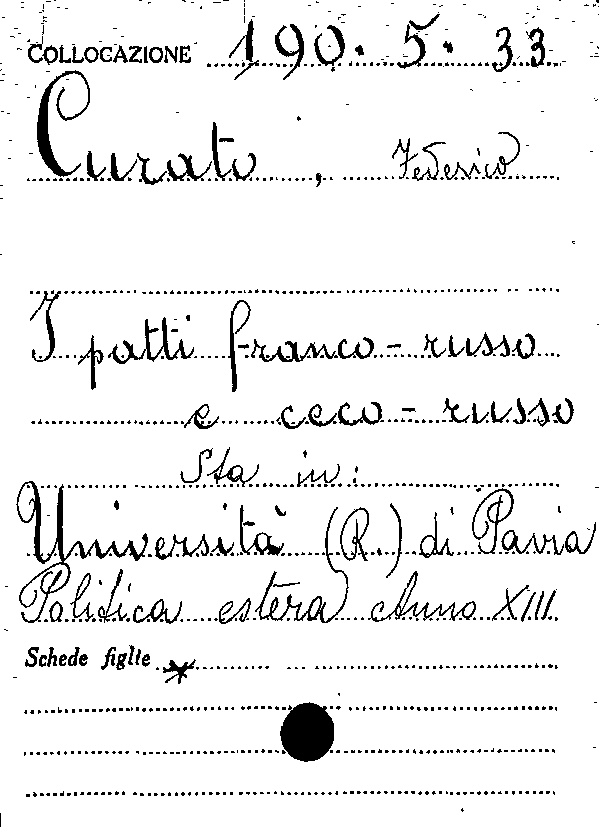 COLLOCAZIONE 190. 5. 33
Curato, Federico
I patti franco-russo
e ceco-russo
Sta in:
Università (R.) di Pavia
Politica estera Anno XIII
Schede figlie *